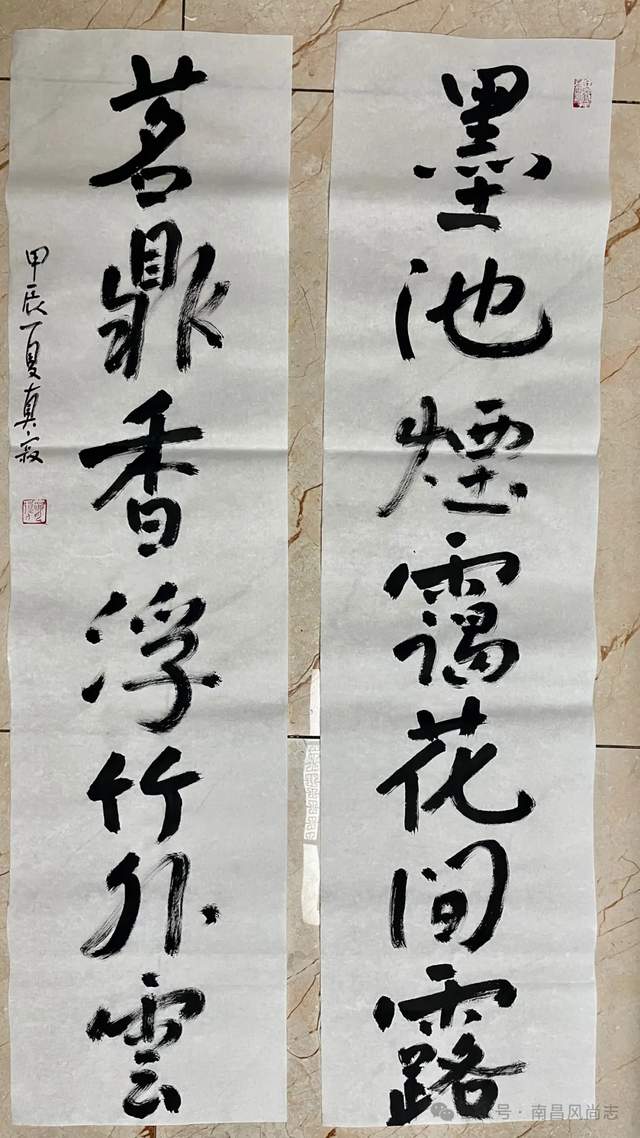 墨池煙靄花间露
茗鼎香浮竹外雲
甲辰夏真寂
号·南昌风尚志